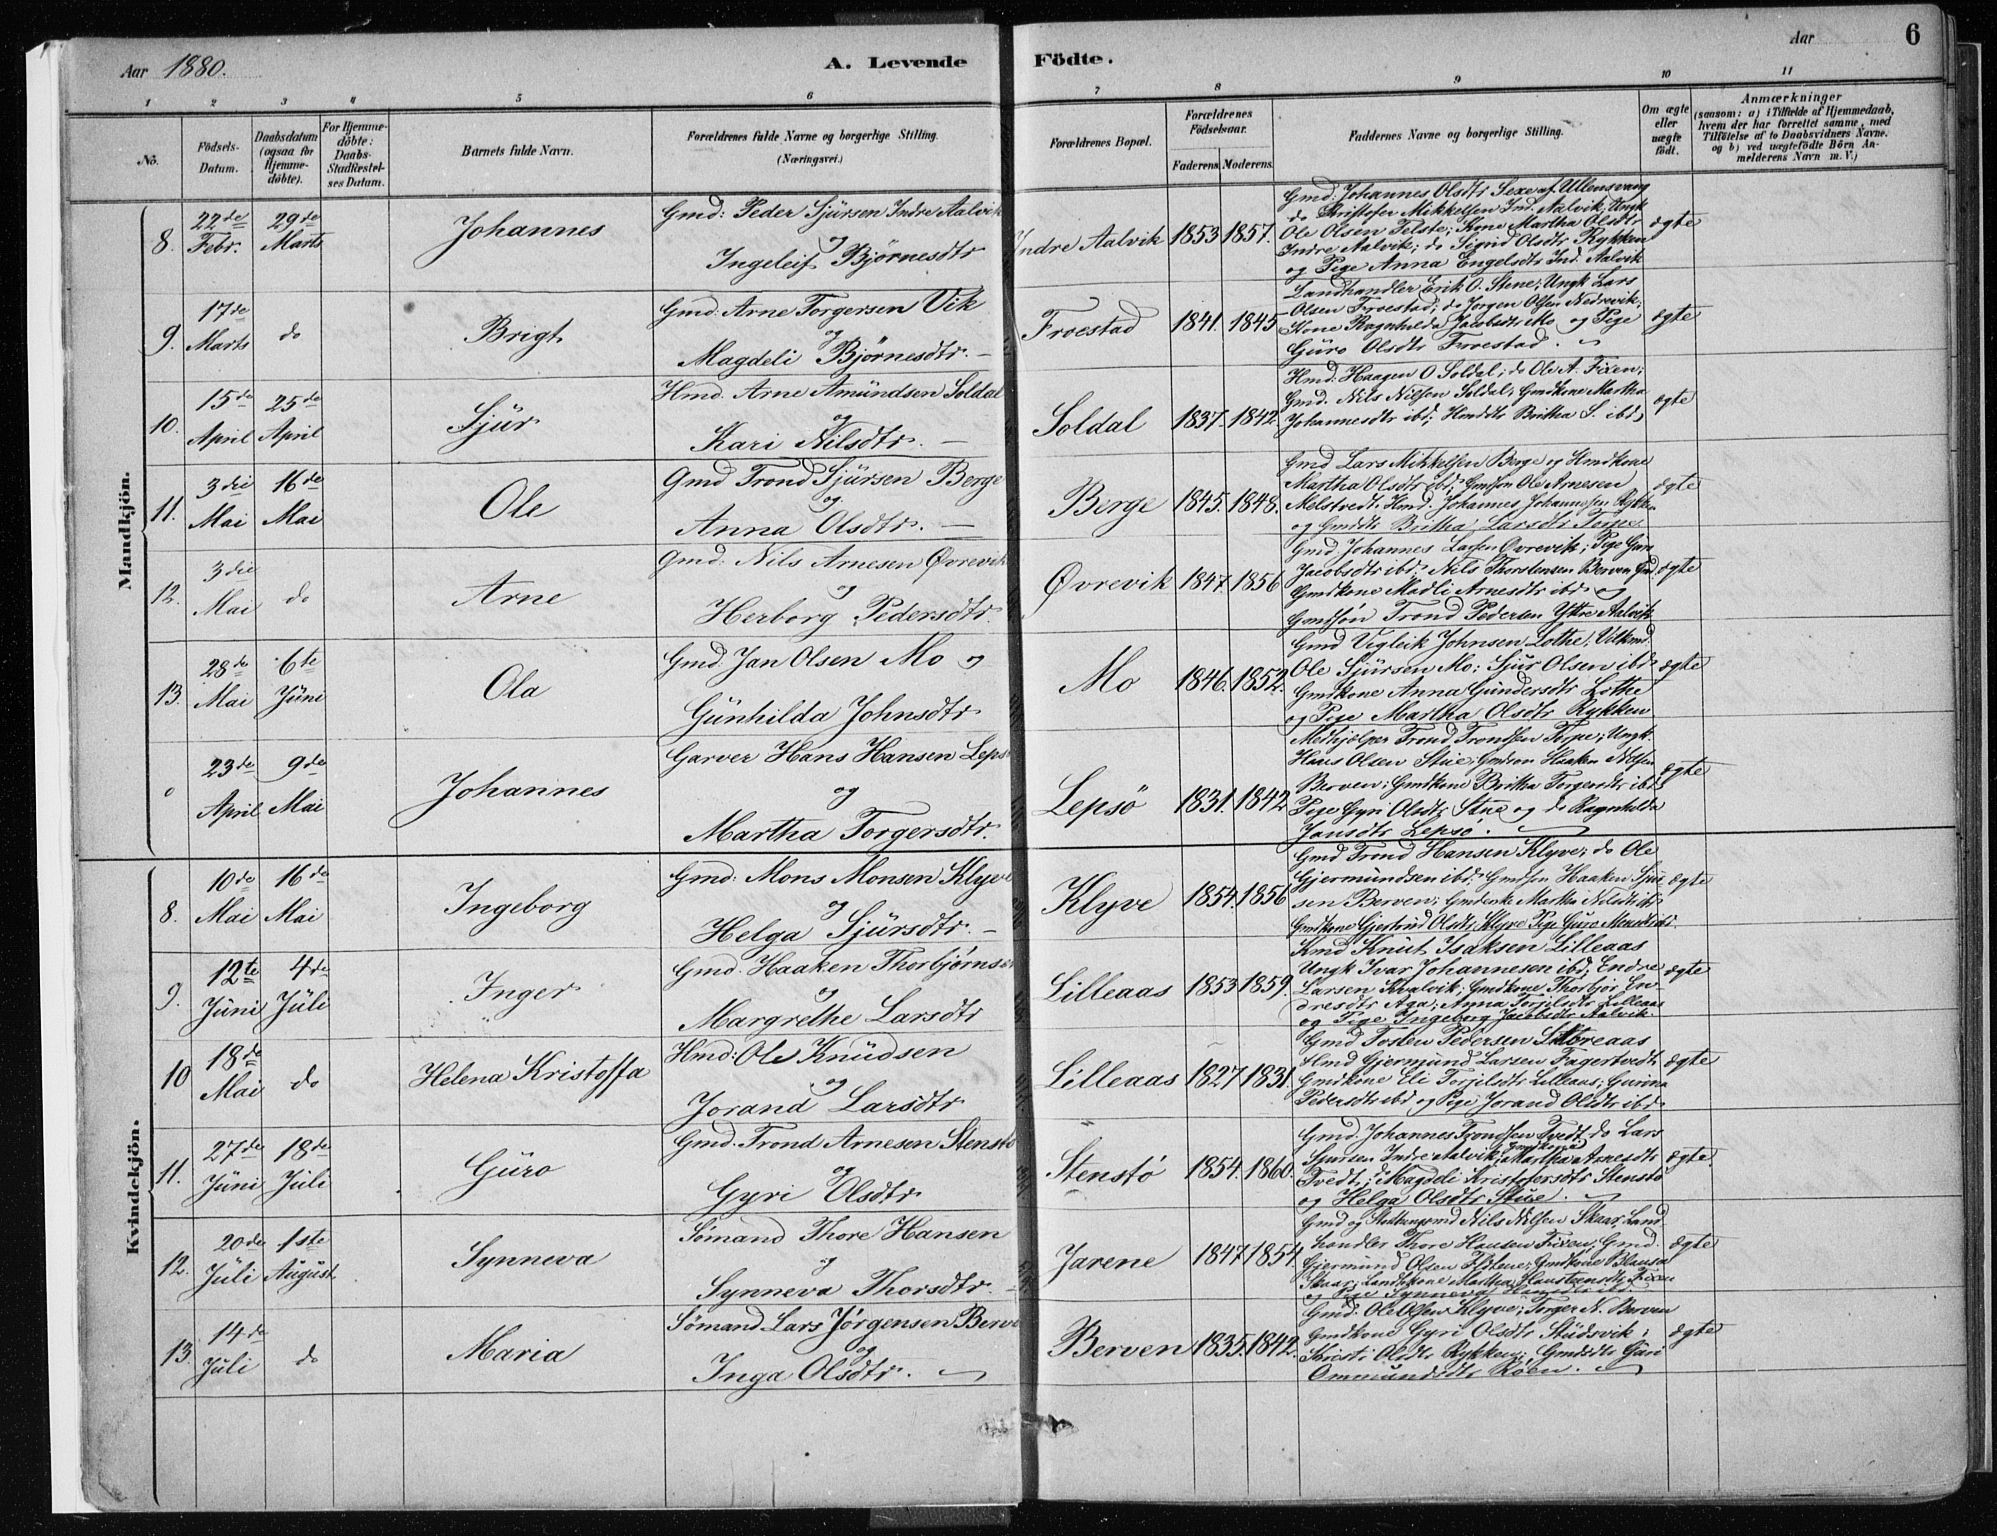 Aar 1880. A. Levende Födte. Aar 6
1 2 3 4 5 6 7 8 9 10 11
No.
Födsels-Datum.
Daabsdatum (ogsaa for Hjemme-döbte).
For Hjemme-döbte: Daabs-Stadfæstel-ses Datum.
Barnets fulde Navn.
Forældrenes fulde Navne og borgerlige Stilling.
(Næringsvei.)
Forældrenes Bopæl.
Forældrenes Födselsaar.
Faderens. Moderens.
Faddernes Navne og borgerlige Stilling.
Om ægte eller uægte födt.
Anmærkninger
(saasom: a) i Tilfælde af Hjemmedaab,
hvem der har forrettet samme, med
Tilföielse af to Daabsvidners Navne.
og b) ved uægtefödte Börn An-
melderens Navn m. V.)
Mandkjön.
8. 22de Febr. 29de Marts Johannes
Gmd: Peder Sjürsen Indre Aalvik
og
Ingeleif Bjørnesdtr
Indre Aalvik 1853 1857.
Gmd. Johannes Olsdtr Sexe af Ullensvang
do Christofer Mikkelsen Ind. Aalvik; Ungk
Ole Olsen Telste; Kone Martha Olsdtr
Indre Aalvik; do Sigrid Olsdtr Rykken
og Pige Anna Engelsdtr Ind. Aalvik
ægte
9. 17de Marts do Brigt
Gmd: Arne Torgersen Vik
og
Magdeli Bjørnesdtr.
Froestad 1841. 1845
Landhandler Erik O. Stene; Ungk Lars
Olsen Froestad; do Jørgen Olsen Nedrevik;
Kone Ragnhilda Jacobsdtr Mo og Pige
Güro Olsdtr Froestad.
ægte
10. 15de April 25de April Sjür
Hmd. Arne Amündsen Soldal
og
Kari Nilsdtr.
Soldal 1837. 1842
Hmd: Haagen O Soldal; do Ole A. Fixen;
Gmd. Nils Nilsen Soldal; Gmdkone Martha
Johannesdtr ibd; Hmddtr Britha S. ibd;
ægte
11. 3die Mai 16de Mai Ole
Gmd Trond Sjürsen Berge
og
Anna Olsdtr.
Berge 1845. 1848.
Gmd Lars Mikkelsen Berge og Hmdkone
Martha Olsdtr ibd; Gmdsøn Ole Arnesen
Melstvedt. Hmd. Johannes Johannesen Rykken
og Gmddtr Britha Larsdtr Torpe
ægte
12. 3die Mai do Arne
Gmd: Nils Arnesen Øvrevik
og
Herborg Pedersdtr.
Øvrevik 1847. 1856
Gmd. Johannes Larsen Øvrevik; Pige Guri
Jacobsdtr ibd; Nils Thorstensen Berven Gmd.
Gmdkone Madli Arnesdtr ibd og
Gmdsøn Trond Pedersen Yttre Aalvik
ægte
13. 28de Mai 6te Jüni Ola
Gmd. Jan Olsen Mo og
Günhilda Johnsdtr
Mo 1846. 1852.
Gmd Vigleik Johnsen Lothe;
Ole Sjürsen Mo; Sjur Olsen ibd
Gmdkone Anna Gündersdtr Lothe
og Pige Martha Olsdtr Rykken
ægte
23de April 9de Mai Johannes
Garver Hans Hansen Lepsø
og
Martha Torgersdtr.
Lepsö 1831. 1842
Medhjælper Trond Trondsen Torpe; Ungk.
Hans Olsen Stüe; Gmdson Haaken Nilsen
Berven; Gmdkone Britha Torgersdtr ibd;
Pige Gyri Olsdtr Stüe og do Ragnhilda
Jansdtr Lepsø.
ægte
Kvindekjön.
8. 10de Mai 16de Mai Ingeborg
Gmd: Mons Monsen Klyve
og
Helga Sjürsdtr.
Klyve 1854. 1856
Gmd Trond Hansen Klyve; do Ole
Gjermündsen ibd; Gmdson Haaken Sjur-
sen Berven; Gmdenke Martha Nilsdtr ibd
Gmdkone Gjertrud Olsdtr Klyve Pige Guro Monsdtr ibd
ægte
9. 12te Jüni 4de Jüli Inger
Gmd. Haaken Thorbjørnsen
og
Margrethe Larsdtr
Lilleaas 1853 1859.
Kmd Knüt Isaksen Lilleaas
Ungk Ivar Johannesen ibd; Endre
Larsen Kvalvik; Gmdkone Thorbjør En-
dresdtr Aga; Anna Torjilsdtr Lilleaas
og Pige Ingeborg Jacobsdtr Aalvik.
ægte
10 18de Mai do Helena Kristoffa
Hmd: Ole Knüdsen
og
Jorand Larsdtr
Lilleaas 1827 1831.
Gmd Tosten Pedersen Storeaas
Hmd Gjermünd Larsen Fagertvedt;
Gmdkone Eli Torjilsdtr Lilleaas; Gurina
Pedersdtr ibd og Pige Jorand Olsdtr ibd
ægte
11. 27de Jüni 18de Jüli Güro
Gmd. Trond Arnesen Stenstø
og
Gyri Olsdtr
Stenstö 1854. 1860.
Gmd. Johannes Trondsen Tvedt do Lars
Sjursen Indre Aalvik; Gmdkone Martha Arnesdtr
Tvedt; do Magdeli Kristofersdtr Stenstö
og Helga Olsdtr Stüe.
ægte.
12. 20de Jüli 1ste Aügust Synneva
Sømand Thore Hansen
og
Synneva Thorsdtr.
Jarene 1847 1854
Gmd og Nils Nilsen Skaar, Land-
handler Thore Hansen Fixen; Gmd.
Gjermund Olsen; Gmdkone
Skaar; Landhkone Martha Fixen
og Pige Synneva
ægte
13. 14de Jüli do Maria
Sømand Lars Jørgensen Berve
og
Inga Olsdtr.
Berven 1835. 1842.
Gmd. Ole Olsen Klyve; Torger N. Berven
Gmdkone Gyri Olsdtr Stüdsvik;
Kristi Olsdtr Rykken; Gmddtr Güri
Ommundsdtr Röen.
ægte